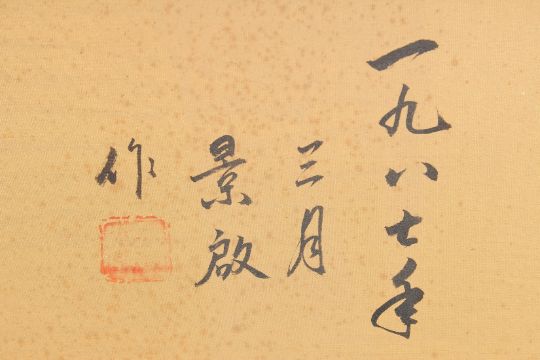 一九八七年
三月
景啟
作